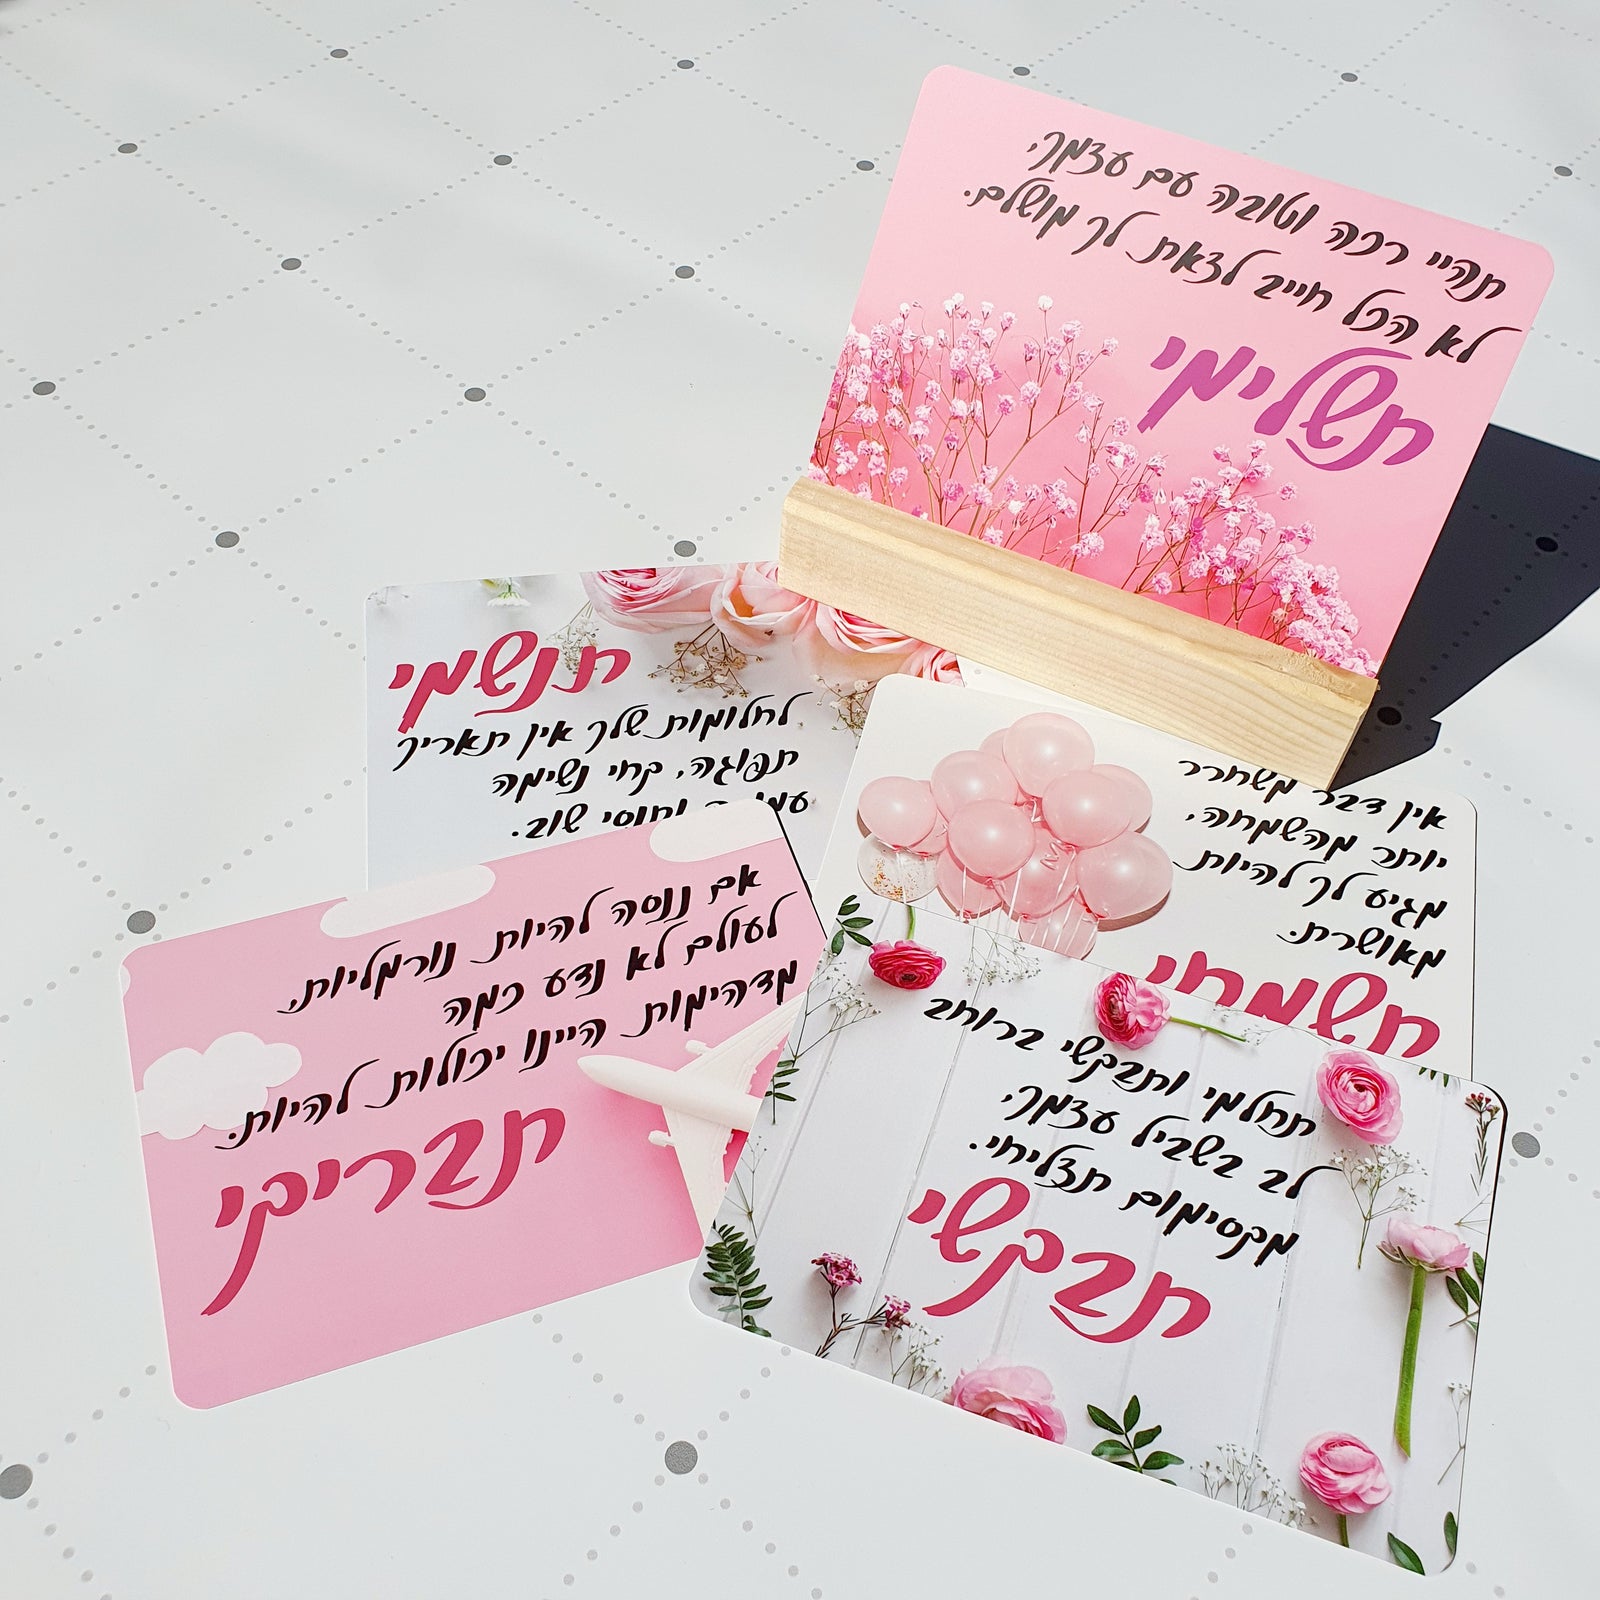 תהיי רכה וטובה עם עצמך,
לא הכל חייב לצאת לך מושלם.
תשלימי
תנשמי
לחלומות שלך אין תאריך
תפוגה, קחי נשימה
וחוסי שוב.
אין דבר משחרר
יותר מהשמחה,
מגיע לך להיות
מאושרת.
תשמחי
אם ננסה להיות נורמליות,
לעולם לא נדע כמה
מדהימות היינו יכולות להיות.
תבריקי
תחלמי ותבקשי ברוחב
לב בשביל עצמך,
מקסימום תצליחי.
תבקשי